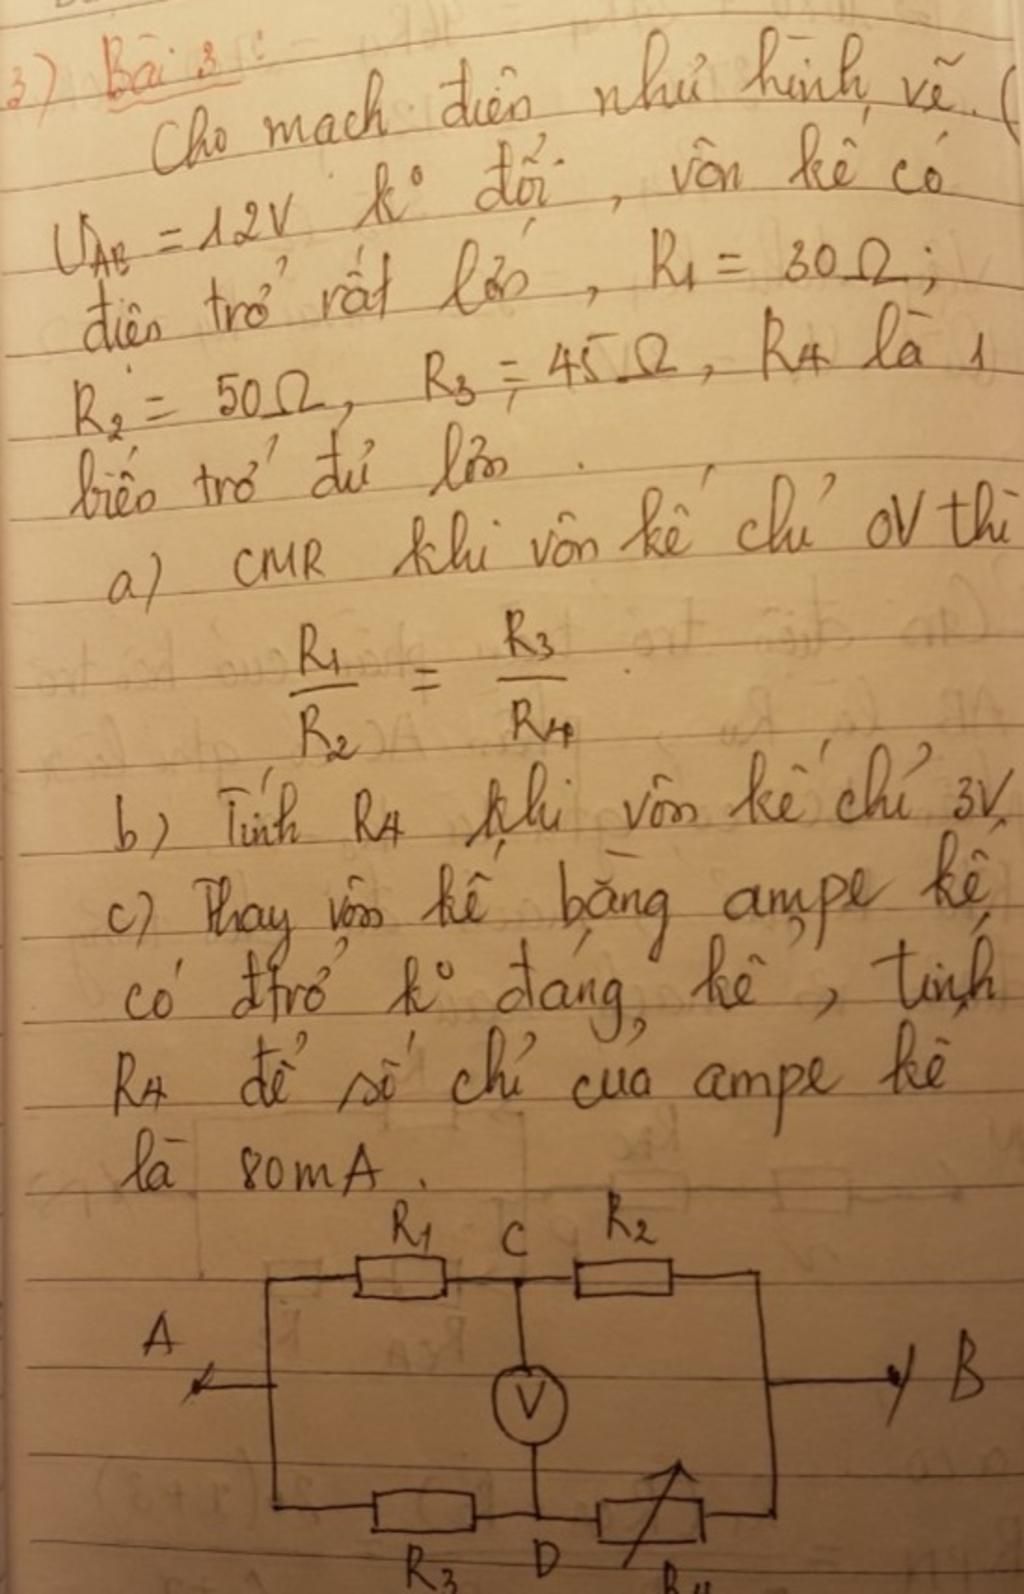 3) Bài 3:
Cho mạch điện như hình vẽ. (
UAB = 12V k° đổi, vôn kế có
điện trở rất lớn, R1 = 30Ω;
R2 = 50Ω, R3 = 45Ω, R4 là 1
biến trở đủ lớn.
a) CMR khi vôn kế chỉ 0V thì
R1/R2 = R3/R4
b) Tính R4 khi vôn kế chỉ 3V
c) Thay vôn kế bằng ampe kế
có đtrở k° đáng kể, tính
R4 để số chỉ của ampe kế
là 80mA.
R1 C R2
A V B
R3 D R4